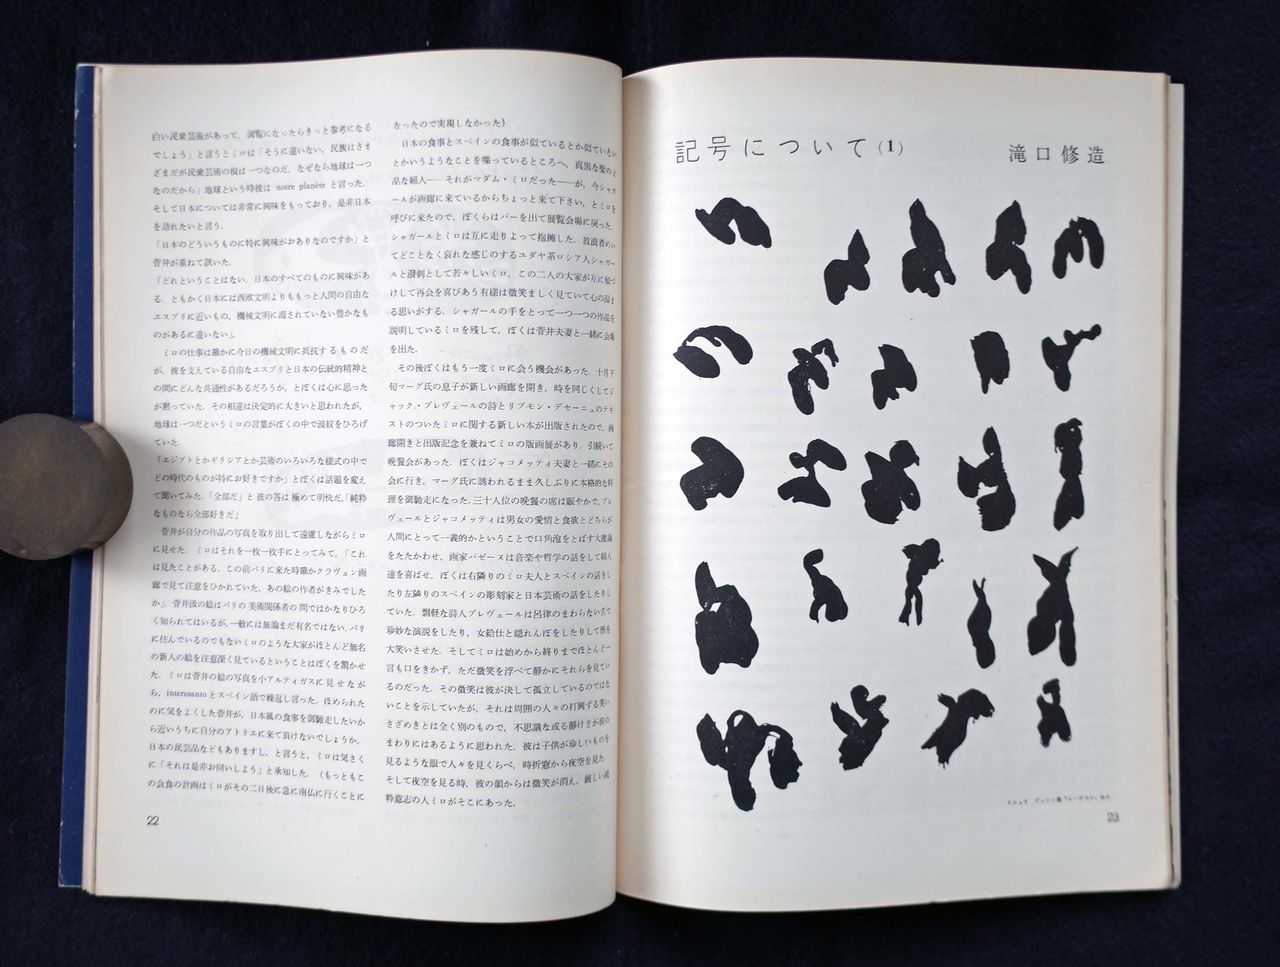 白い民衆芸術があって、御覧になったらきっと参考になる
でしょう」と言うとミロは「そうに違いない、民族はさま
ざまだが民衆芸術の根は一つなのだ、なぜなら地球は一つ
なのだから」地球という時彼は notre planète と言った。
そして日本については非常に興味をもっており、是非日本
を訪れたいと言う。
「日本のどういうものに特に興味がおありなのですか」と
菅井が重ねて訊いた。
「どれということはない、日本のすべてのものに興味があ
る、ともかく日本には西欧文明よりももっと人間の自由な
エスプリに近いもの、機械文明に毒されていない豊かなも
のがあるに違いない」。
ミロの仕事は確かに今日の機械文明に抵抗するものだ
が、彼を支えている自由なエスプリと日本の伝統的精神と
の間にどんな共通性があるだろうか、とぼくは心に思った
が黙っていた。その相違は決定的に大きいと思われたが、
地球は一つだというミロの言葉がぼくの中で波紋をひろげ
ていた。
「エジプトとかギリシアとか芸術のいろいろな様式の中で
どの時代のものが特にお好きですか」とぼくは話題を変え
て聞いてみた。「全部だ」と彼の答は極めて明快だ、「純粋
なものなら全部好きだ」
菅井が自分の作品の写真を取り出して遠慮しながらミロ
に見せた。ミロはそれを一枚一枚手にとってみて、「これ
は見たことがある、この前パリに来た時確かクラヴェン画
廊で見て注意をひかれていた、あの絵の作者がきみでした
か」。菅井汲の絵はパリの美術関係者の間ではかなりひろ
く知られてはいるが、一般には無論まだ有名ではない、パリ
に住んでいるのでもないミロのような大家がほとんど無名
の新人の絵を注意深く見ているということはぼくを驚かせ
た。ミロは菅井の絵の写真を小アルティガスに見せなが
ら、interesanto とスペイン語で繰返し言った。ほめられた
のに気をよくした菅井が、日本風の食事を御馳走したいか
ら近いうちに自分のアトリエに来て頂けないでしょうか、
日本の民芸品などもありますし、と言うと、ミロは気さく
に「それは是非お伺いしよう」と承知した。（もっともこ
の会食の計画はミロがその二日後に急に南仏に行くことに
22
なったので実現しなかった）
日本の食事とスペインの食事が似ているとか似ていない
とかいうようなことを喋っているところへ、真黒な髪の上
品な婦人――それがマダム・ミロだった――が、今シャガ
ールが画廊に来ているからちょっと来て下さい、とミロを
呼びに来たので、ぼくらはバーを出て展覧会場に戻った。
シャガールとミロは互に走りよって抱擁した。放浪者めい
てどことなく哀れな感じのするユダヤ系ロシア人シャガー
ルと潑剌として若々しいミロ、この二人の大家が互に傾づ
けして再会を喜びあう有様は微笑ましく見ていて心の温ま
る思いがする。シャガールの手をとって一つ一つの作品を
説明しているミロを残して、ぼくは菅井夫妻と一緒に会場
を出た。
その後ぼくはもう一度ミロに会う機会があった。十月下
旬マーグ氏の息子が新しい画廊を開き、時を同じくしてジ
ャック・プレヴェールの詩とリブモン・デセーニュのテキ
ストのついたミロに関する新しい本が出版されたので、画
廊開きと出版記念を兼ねてミロの版画展があり、引続いて
晩餐会があった。ぼくはジャコメッティ夫妻と一緒にその
会に行き、マーグ氏に誘われるまま久しぶりに本格的な料
理を御馳走になった。三十人位の晩餐の席は賑やかで、プレ
ヴェールとジャコメッティは男女の愛情と食欲とどちらが
人間にとって一義的かということで口角泡をとばす大激論
をたたかわせ、画家バゼーヌは音楽や哲学の話をして婦人
達を喜ばせ、ぼくは右隣りのミロ夫人とスペインの話をし
たり左隣りのスペインの彫刻家と日本芸術の話をしたりし
ていた。瓢軽な詩人プレヴェールは呂律のまわらない舌で
珍妙な演説をしたり、女給仕と隠れんぼをしたりして皆を
大笑いさせた。そしてミロは始めから終りまでほとんど一
言も口をきかず、ただ微笑を浮べて静かにそれらを見てい
るのだった。その微笑は彼が決して孤立しているのではな
いことを示していたが、それは周囲の人々の打興ずる笑い
さざめきとは全く別のもので、不思議な或る静けさが彼の
まわりにはあるように思われた。彼は子供が珍しいものを
見るような眼で人々を見くらべ、時折窓から夜空を見た。
そして夜空を見る時、彼の顔からは微笑が消え、厳しい純
粋意志の人ミロがそこにあった。
記号について(1)
滝口修造
23